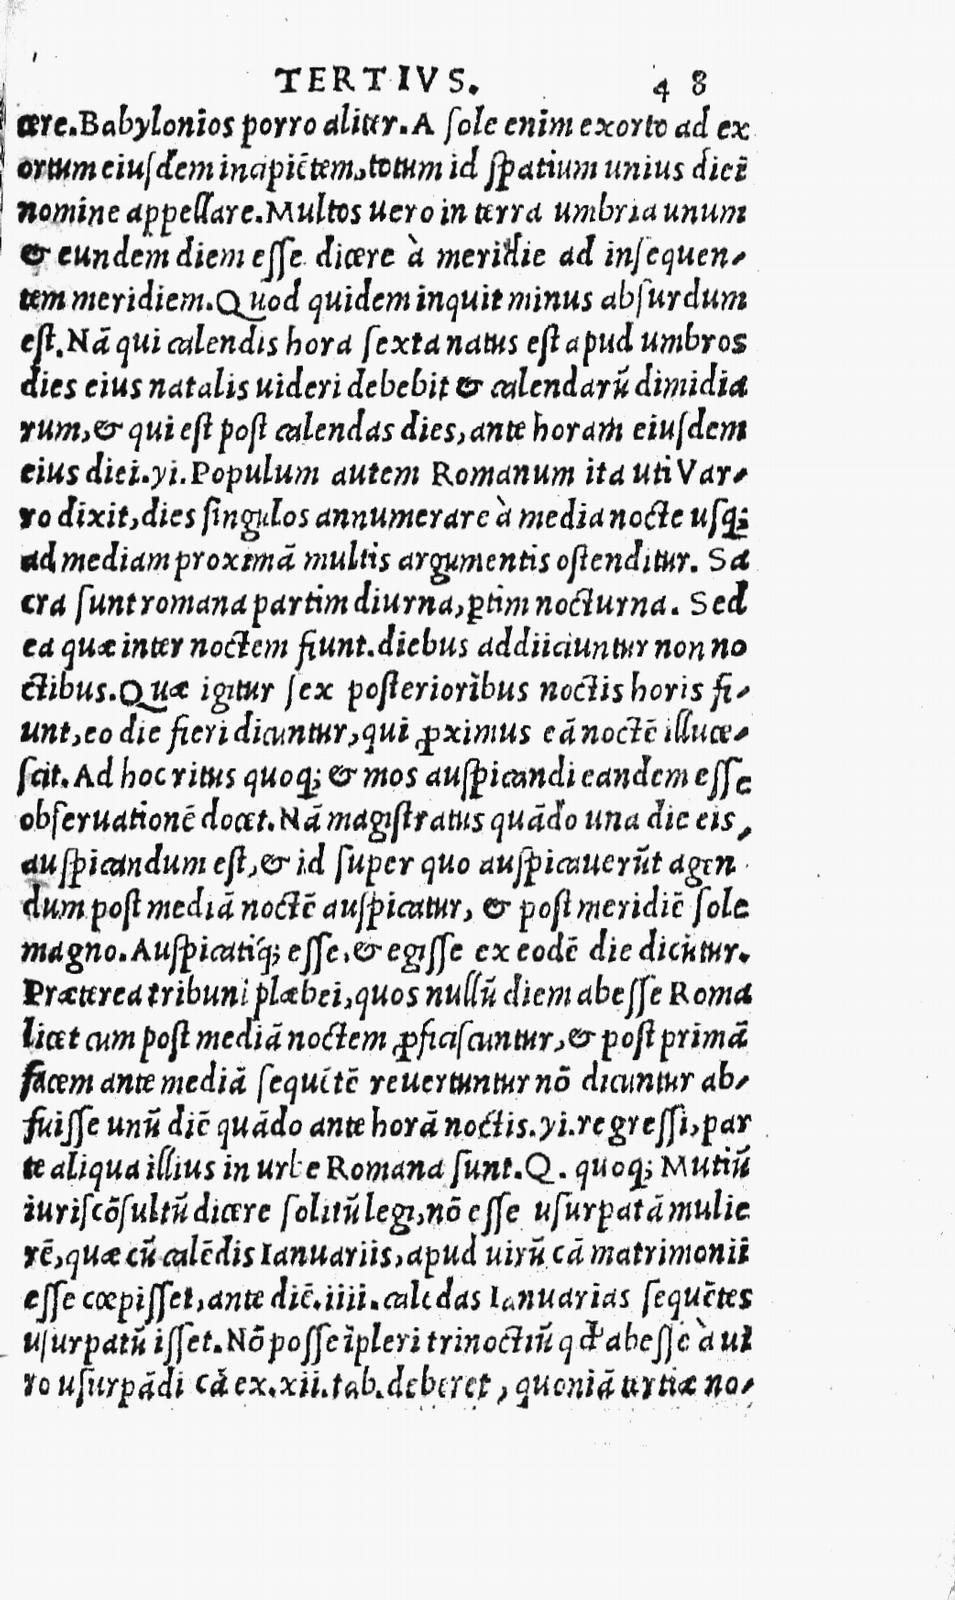 TERTIVS. 48
cere. Babylonios porro aliter. A sole enim exorto ad ex
ortum eiusdem incipiẽtem, totum id spatium unius diei
nomine appellare. Multos uero in terra umbria unum
& eundem diem esse dicere à meridie ad insequen-
tem meridiem. Quod quidem inquit minus absurdum
est. Nã qui calendis hora sexta natus est apud umbros
dies eius natalis uideri debebit & calendarũ dimidia
rum, & qui est post calendas dies, ante horam eiusdem
eius diei. yi. Populum autem Romanum ita uti Var-
ro dixit, dies singulos annumerare à media nocte usq;
ad mediam proximã multis argumentis ostenditur. Sa
cra sunt romana partim diurna, ꝑtim nocturna. Sed
ea quæ inter noctem fiunt. diebus addiiciuntur non no
ctibus. Quæ igitur sex posterioribus noctis horis fi-
unt, eo die fieri dicuntur, qui ꝓximus eã noctẽ illuce-
scit. Ad hoc ritus quoq; & mos auspicandi eandem esse
obseruationẽ docet. Nã magistratus quãdo una die eis,
auspicandum est, & id super quo auspicauerũt agen
dum post mediã noctẽ auspicatur, & post meridiẽ sole
magno. Auspicatiq́; esse, & egisse ex eodẽ die dicũtur.
Præterea tribuni plæbei, quos nullũ diem abesse Roma
licet cum post mediã noctem ꝓficiscuntur, & post primã
facem ante mediã sequẽtẽ reuertuntur nõ dicuntur ab-
fuisse unũ diẽ quãdo ante horã noctis. yi. regressi, par
te aliqua illius in urbe Romana sunt. Q. quoq; Mutiũ
iuriscõsultũ dicere solitũ legi, nõ esse usurpatã mulie
rẽ, quæ cũ calẽdis Ianuariis, apud uirũ cã matrimonii
esse cœpisset, ante diẽ. iiii. calẽdas Ianuarias sequẽtes
usurpatũ isset. Nõ posse ĩpleri trinoctiũ qđ abesse à ui
ro usurpãdi cã ex. xii. tab. deberet, quoniã tertiæ no-